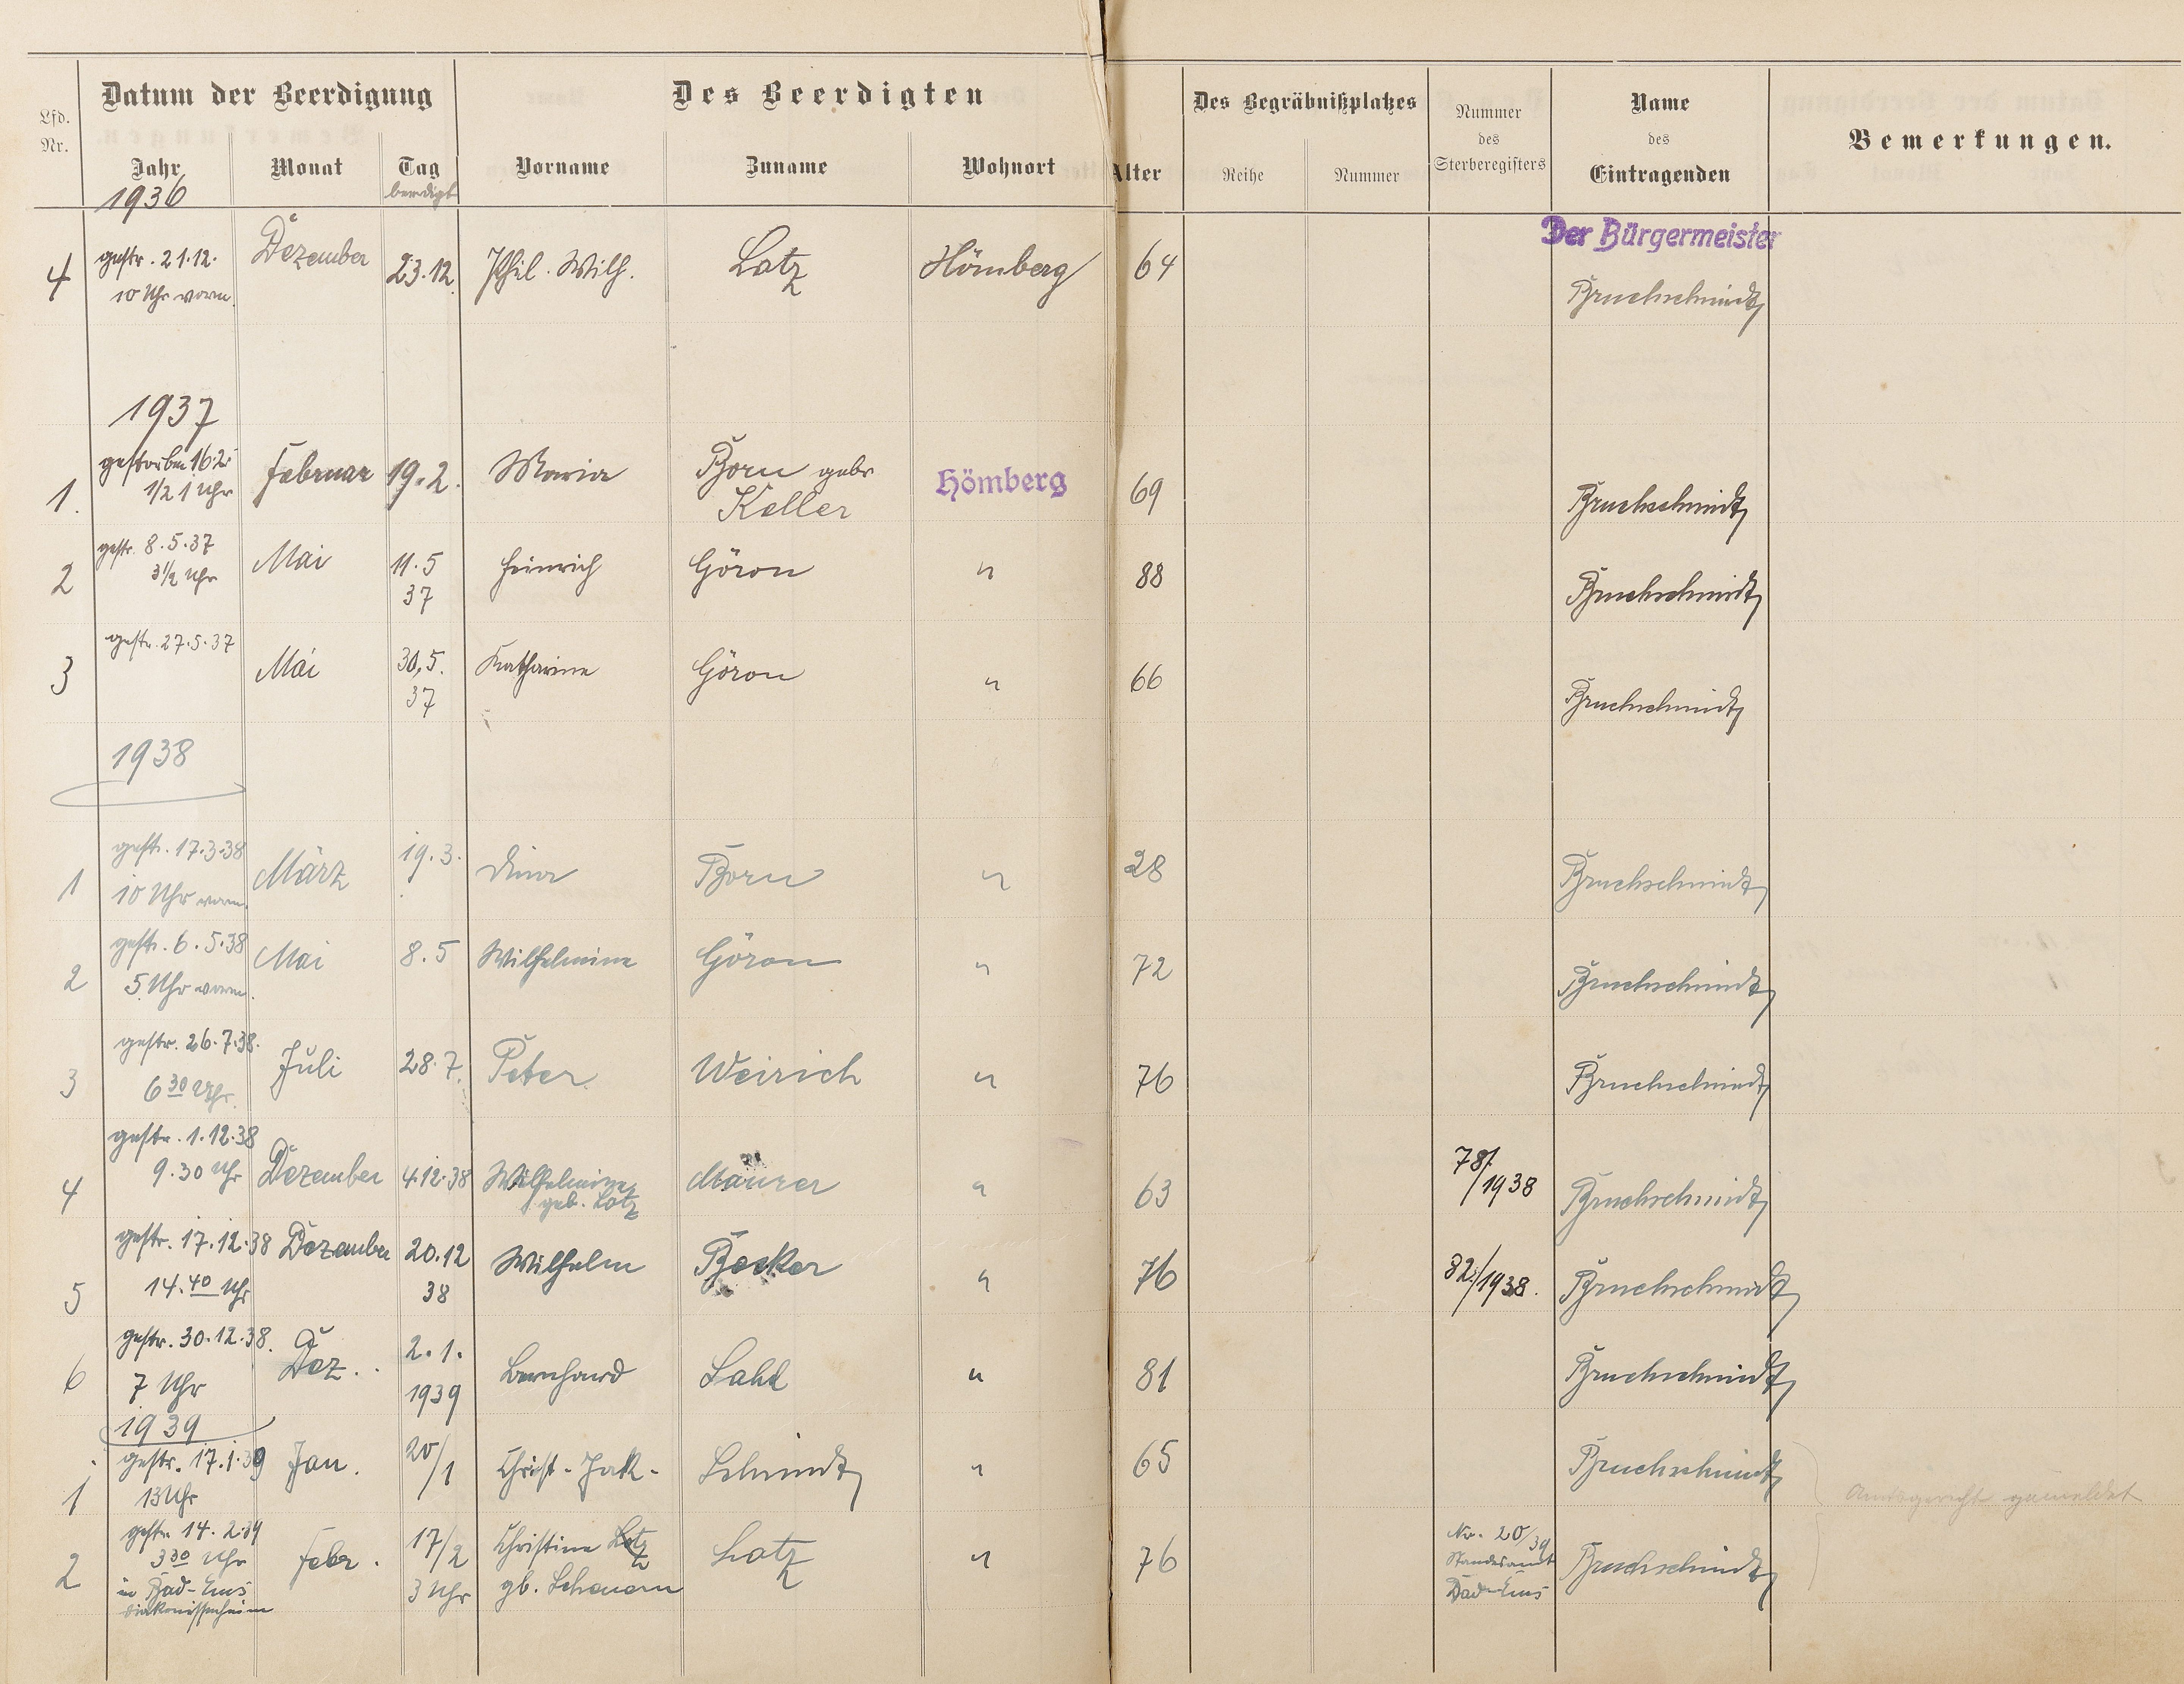 Lfd. Nr.
Datum der Beerdigung
Des Beerdigten
Alter
Des Begräbnißplatzes
Nummer des Sterberegisters
Name des Eintragenden
Bemerkungen.
Jahr Monat Tag Vorname Zuname Wohnort Reihe Nummer
1936 beerdigt
Der Bürgermeister
4 gestr. 21.12. Dezember 23.12. Phil. Wilh. Lotz Hömberg 64 Bruchschmidt
10 Uhr vorm.
1937
1. gestorben 16.2. Februar 19.2. Maria Born gebr Hömberg 69 Bruchschmidt
1/2 1 Uhr Keller
2 gestr. 8.5.37 Mai 11.5 Heinrich Göron " 88 Bruchschmidt
3 1/2 Uhr 37
3 gestr. 27.5.37 Mai 30.5. Katharine Göron " 66 Bruchschmidt
37
1938
1 gestr. 17.3.38 März 19.3. Dina Born " 28 Bruchschmidt
10 Uhr vorm.
2 gestr. 6.5.38 Mai 8.5 Wilhelmine Göron " 72 Bruchschmidt
5 Uhr vorm.
3 gestr. 26.7.38. Juli 28.7. Peter Weirich " 76 Bruchschmidt
6 30 Uhr.
4 gestr. 1.12.38 Dezember 4.12.38 Wilhelmine Maurer " 63 78/1938 Bruchschmidt
9.30 Uhr geb. Lotz
5 gestr. 17.12.38 Dezember 20.12 Wilhelm Becker " 76 82/1938. Bruchschmidt
14.40 Uhr 38
6 gestr. 30.12.38. Dez. 2.1. Bernhard Sahl " 81 Bruchschmidt
7 Uhr 1939
1939
1 gestr. 17.1.39 Jan. 20/1 Christ. Jak. Schmidt " 65 Bruchschmidt
13 Uhr
Amtsgericht gemeldet
2 gestr. 14.2.39 Febr. 17/2 Christine Lotz Lotz " 76 No. 20/39 Bruchschmidt
3 30 Uhr 3 Uhr gb. Scheuern Standesamt
in Bad-Ems Bad-Ems
Diakonissenheim